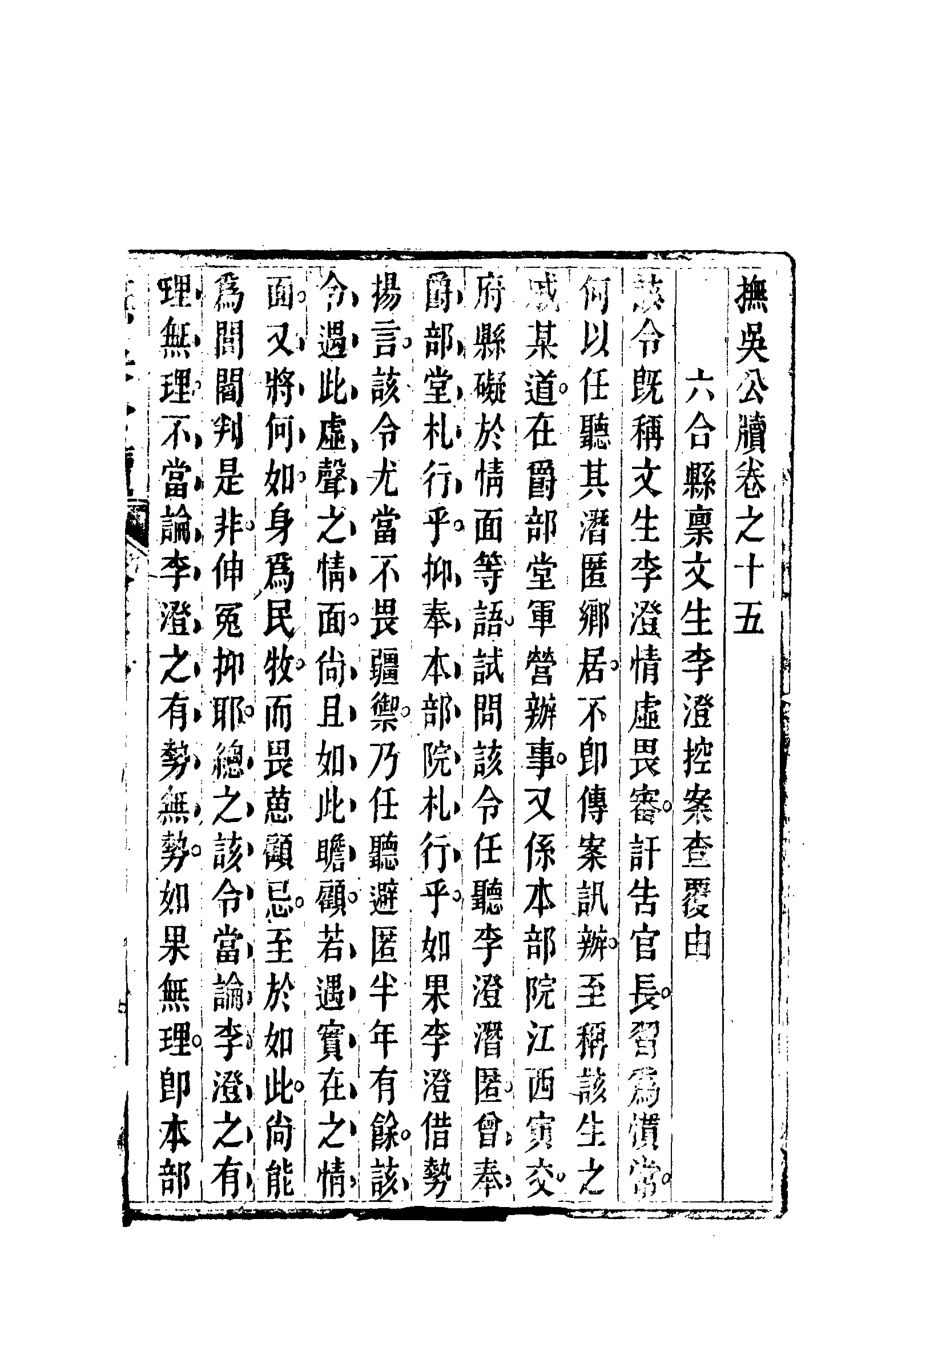 撫吳公牘卷之十五
六合縣稟文生李澄控案查覆由
該令既稱文生李澄情虛畏審。訐告官長。習爲慣常。
何以任聽其潛匿鄉居。不卽傳案訊辦。至稱該生之
戚某道。在爵部堂軍營辦事。又係本部院江西寅交。
府縣礙於情面等語。試問該令任聽李澄潛匿。曾奉
爵部堂札行乎。抑奉本部院札行乎。如果李澄借勢
揚言。該令尤當不畏疆禦。乃任聽避匿半年有餘。該
令遇此虛聲之情面。尚且如此瞻顧。若遇實在之情
面。又將何如。身爲民牧。而畏葸顧忌。至於如此。尚能
爲閭閻判是非。伸冤抑耶。總之該令當論李澄之有
理無理。不當論李澄之有勢無勢。如果無理。卽本部